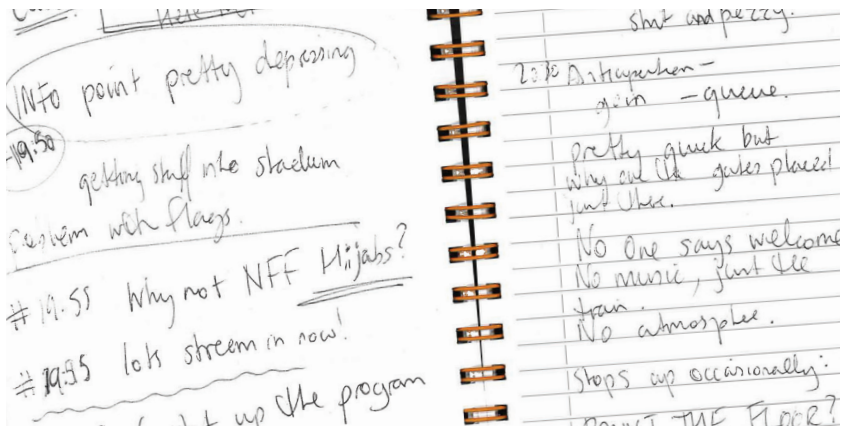 INFO point pretty depressing
19:50
getting stuff into stadium
problem with flags.
# 19.55 Why not NFF Hijabs?
# 19:55 lots streem in now!
up the program
shut and pezzy.
20:10 Anticipation -
gain - queue.
pretty quick but
why are the gates placed
just there.
No One says welcome
No music, just the
train.
No atmosphee.
Stops up occasionally:
THE FLOOR?